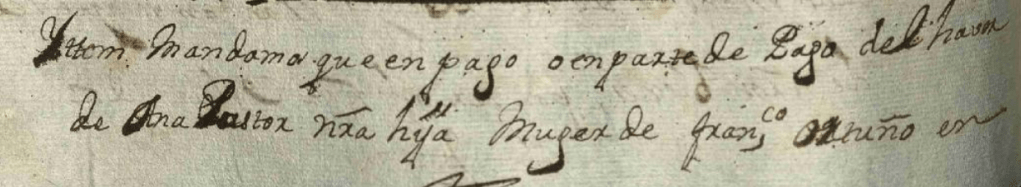 Yttem Mandamos que en pago o en parte de Pago del haver
de Ana Pastor nr̃a hija Muger de fran,co ortuño en